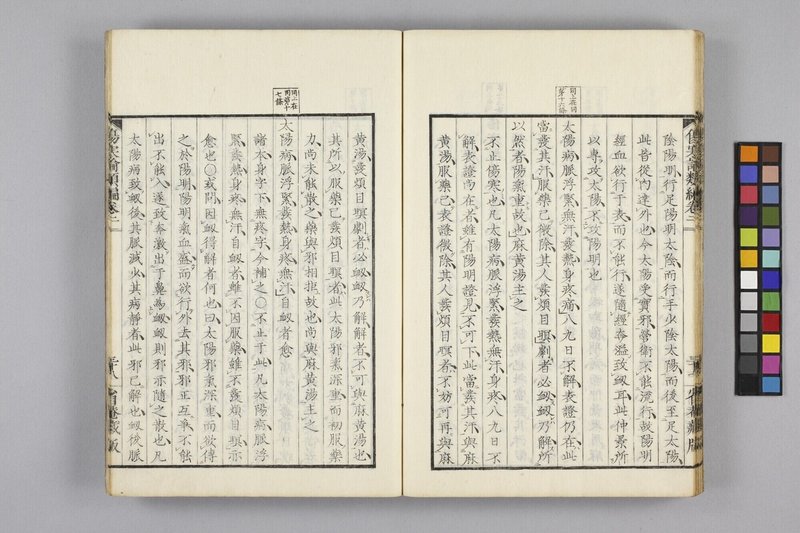 陰陽明行足陽明太陰而行手少陰太陽而後至足太陽
此皆從內達外也今太陽受實邪營衛不能流行故陽明
經血欲行于表而不能行遂隨經奔溢致衂耳此仲景所
以專攻太陽不攻陽明也
太陽病脈浮緊無汗發熱身疼痛八九日不解表證仍在此
當發其汗服藥已微除其人發煩目瞑劇者必衂衂乃解所
以然者陽氣重故也麻黃湯主之
不止傷寒也凡太陽病脈浮緊發熱無汗身疼八九日不
解表證尚在者雖有陽明證見不可下此當發其汗與麻
黃湯服藥已表證微除其人發煩目瞑者不妨可再與麻
黃湯發煩目瞑劇者必衂衂乃解解者不可與麻黃湯也
其所以服藥已發煩目瞑者此太陽邪氣深重而初服藥
力尚未能散之藥與邪相拒故也尚與麻黃湯主之
太陽病脈浮緊發熱身疼無汗自衂者愈
諸本身字下無疼字今補之○不止于此凡太陽病脈浮
緊發熱身疼無汗自衂者雖不因服藥雖不發煩目瞑亦
愈也○或問因衂得解者何也曰太陽邪氣深重而欲傳
之於陽明陽明氣血盛而欲行外去其邪邪正互爭不能
出不能入遂致奔激出于鼻為衂衂則邪亦隨之散也凡
太陽病致衂後其脈減火其病靜者此邪已解也衂後脈